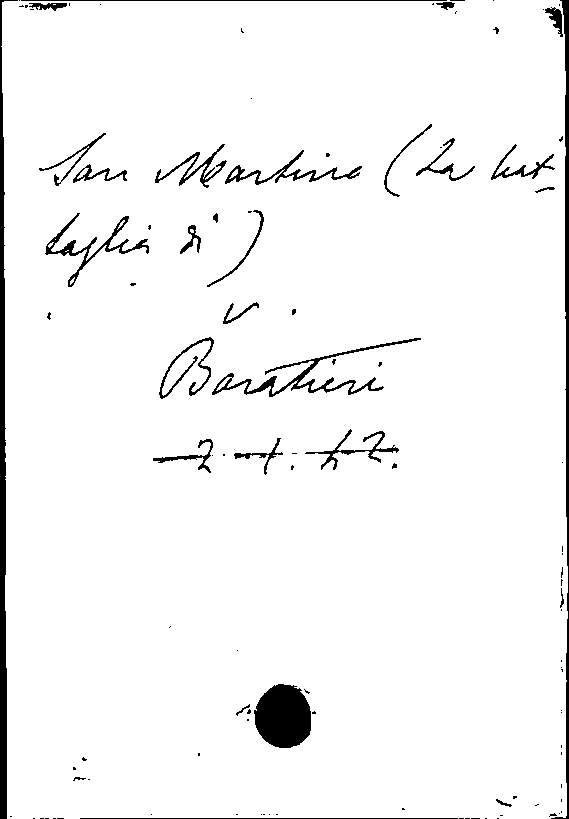 San Martino (La bat-
taglia di)
v.
Baratieri